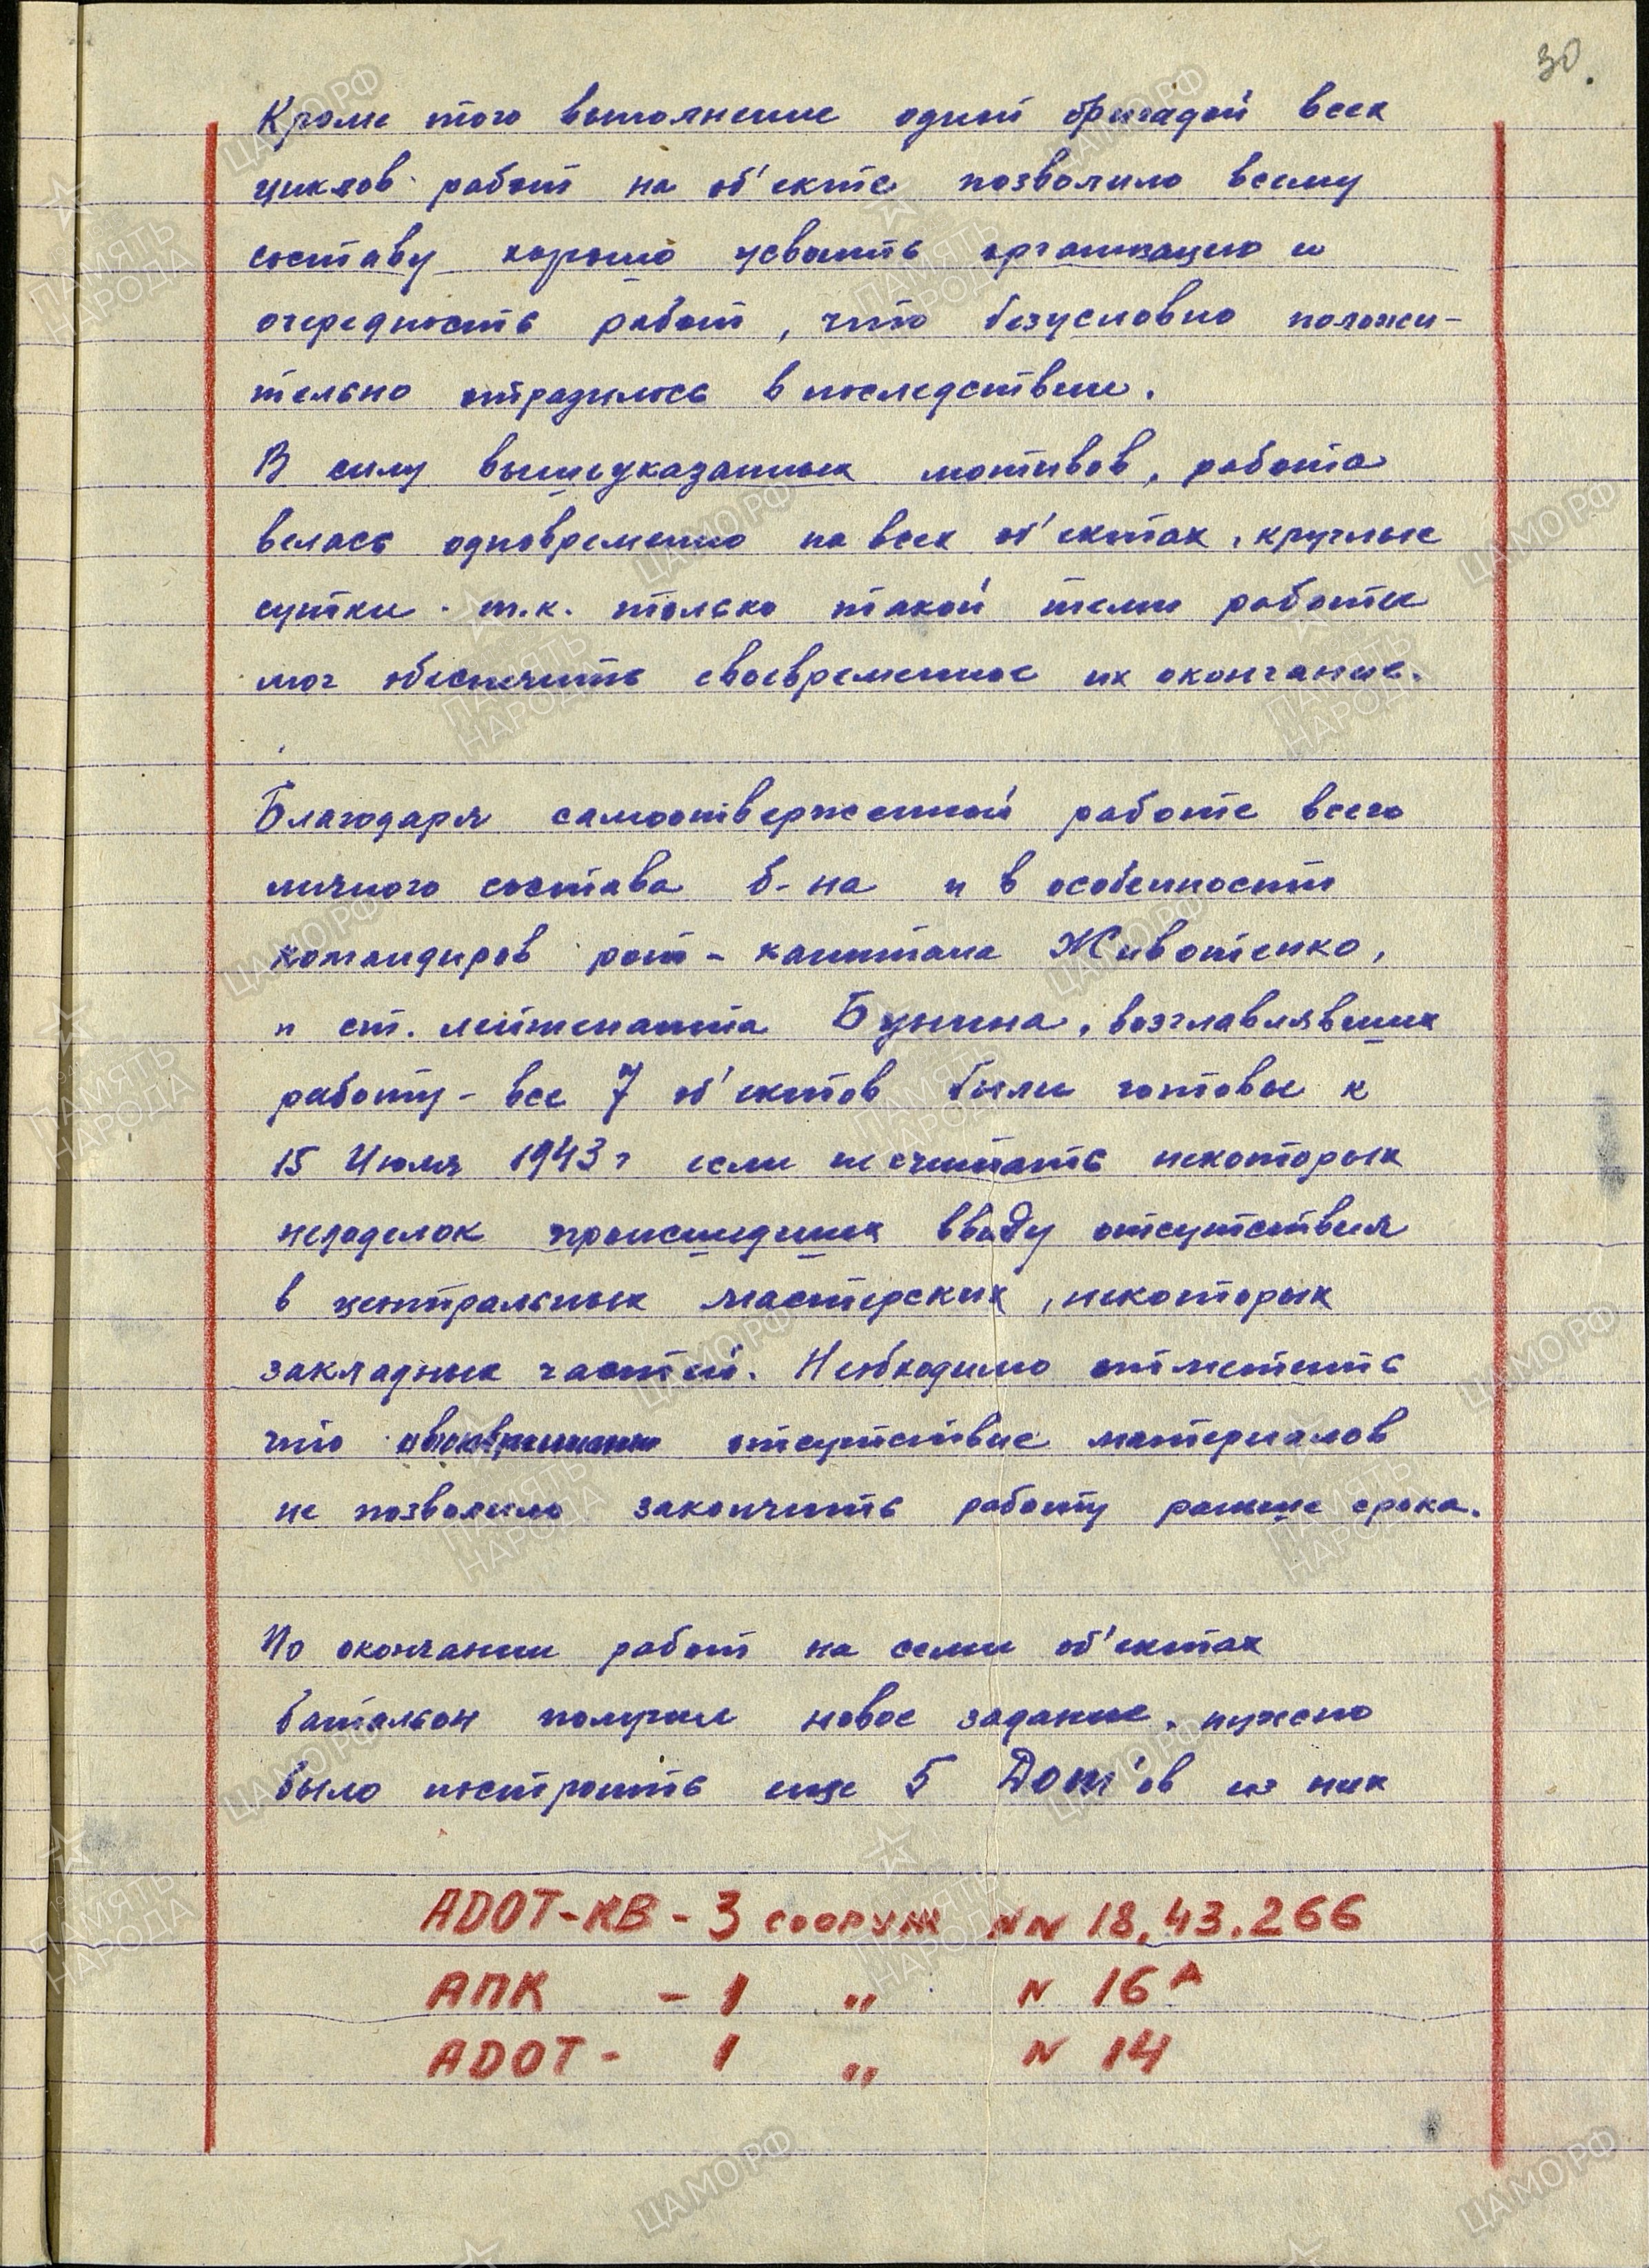 30.
Кроме того выполнение одной бригадой всех
циклов работ на об'екте позволило всему
составу хорошо усвоить организацию и
очередность работ, что безусловно положи-
тельно отразилось в последствии.
В силу вышеуказанных мотивов, работа
велась одновременно на всех об'ектах, круглые
сутки. т.к. только такой темп работы
мог обеспечить своевременное их окончание.
Благодаря самоотверженной работе всего
личного состава б-на и в особенности
командиров рот - капитана Животенко,
и ст. лейтенанта Бунина, возглавлявших
работу - все 7 об'ектов были готовы к
15 Июля 1943 г если не считать некоторых
недоделок происшедших ввиду отсутствия
в центральных мастерских, некоторых
закладных частей. Необходимо отметить
что отсутствие материалов
не позволило закончить работу раньше срока.
По окончании работ на семи об'ектах
батальон получил новое задание, нужно
было построить еще 5 Дот'ов из них
АДОТ-КВ - 3 сооруж NN 18, 43. 266
АПК - 1 " N 16 А
АДОТ - 1 " N 14
ЦАМО РФ
ПАМЯТЬ
НАРОДА